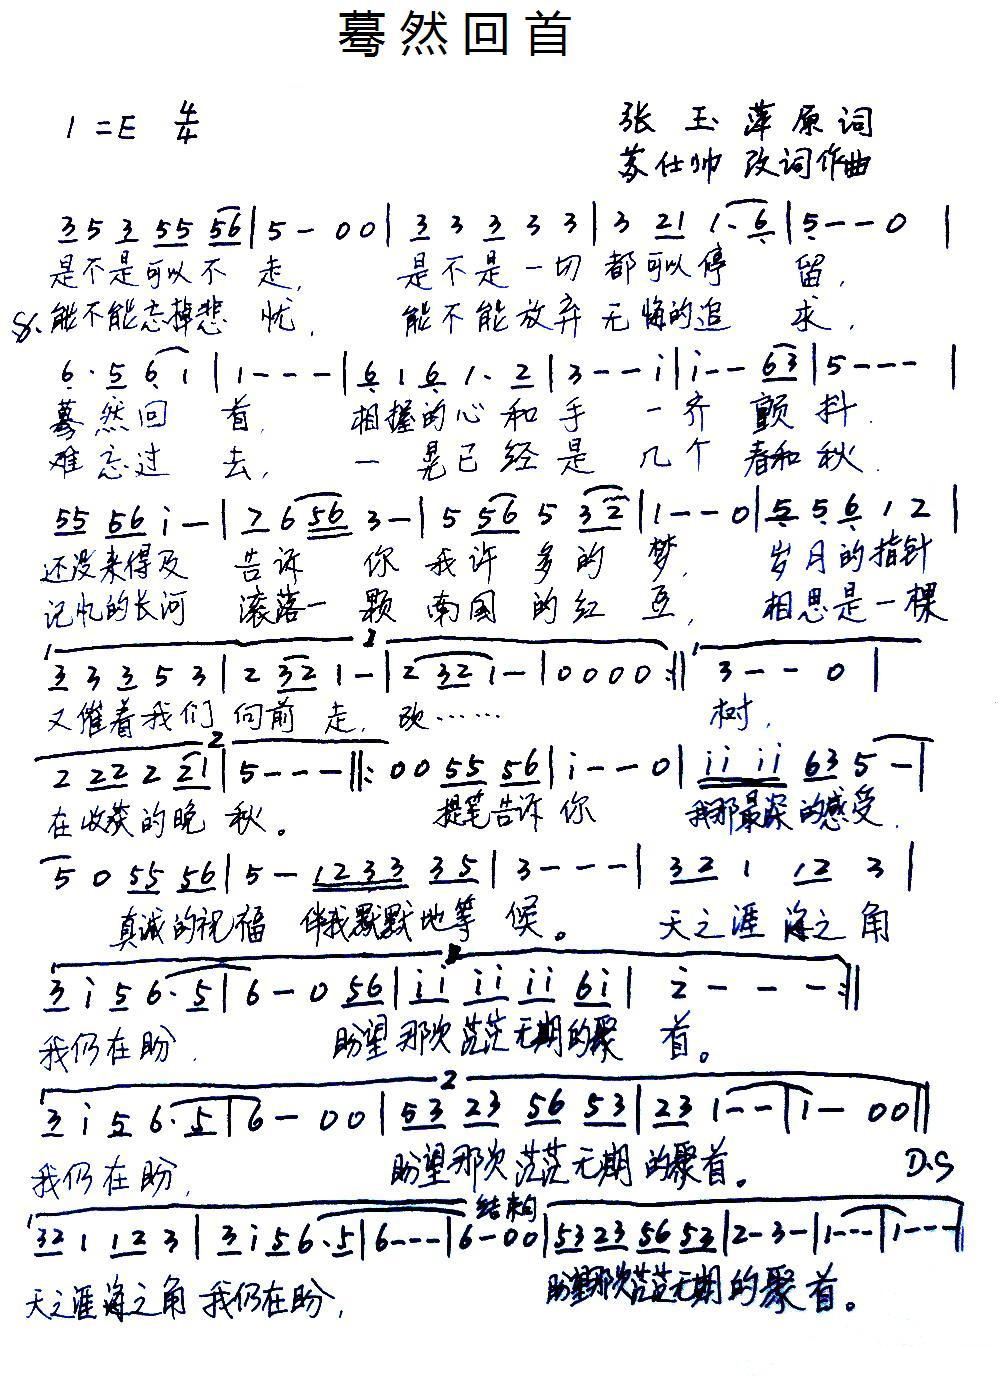 蓦然回首
1=E 4/4
张玉萍原词
苏仕帅 改词作曲
3 5 3 55 56 | 5 - 0 0 | 3 3 3 3 3 | 3 21 1. 6 | 5 - - 0 |
是不是可以不 走, 是不是一切都可以停 留,
能不能忘掉悲 忧, 能不能放弃无悔的追 求,
6. 5 6 1 | 1 - - - | 6 1 6 1. 2 | 3 - - i | i - - 63 | 5 - - - |
蓦然回 首, 相握的心和手 一齐 颤抖.
难忘过 去, 一晃已经是 几个 春和秋.
55 56 i - | 7 6 56 3 - | 5 56 5 32 | 1 - - 0 | 5 5 6 1 2 |
还没来得及 告诉 你 我许多的 梦, 岁月的指针
记忆的长河 滚落一颗 南国的红 豆, 相思是一棵
3 3 3 5 3 | 2 32 1 - | 2 32 1 - | 0 0 0 0 :|| 3 - - 0 |
又催着我们 向前 走, 改…… 树,
2 22 2 21 | 5 - - - ||: 0 0 55 56 | i - - 0 | ii ii 63 5 - |
在收获的晚 秋。 提笔告诉你 我那最深的感受,
5 0 55 56 | 5 - 1233 35 | 3 - - - | 32 1 12 3 |
真诚的祝福 伴我默默地等 候。 天之涯 海之角
3 i 5 6. 5 | 6 - 0 56 | ii ii ii 6i | 2 - - - :||
我仍在盼, 盼望那次茫茫无期的聚 首。
2
3 i 5 6. 5 | 6 - 0 0 | 53 23 56 53 | 23 1 - - | 1 - 0 0 ||
我仍在盼, 盼望那次茫茫无期的聚首。 D.S
结束句
32 1 12 3 | 3 i 5 6. 5 | 6 - - - | 6 - 0 0 | 53 23 56 53 | 2 - 3 - | 1 - - - | 1 - - - |
天之涯海之角 我仍在盼, 盼望那次茫茫无期的聚首。